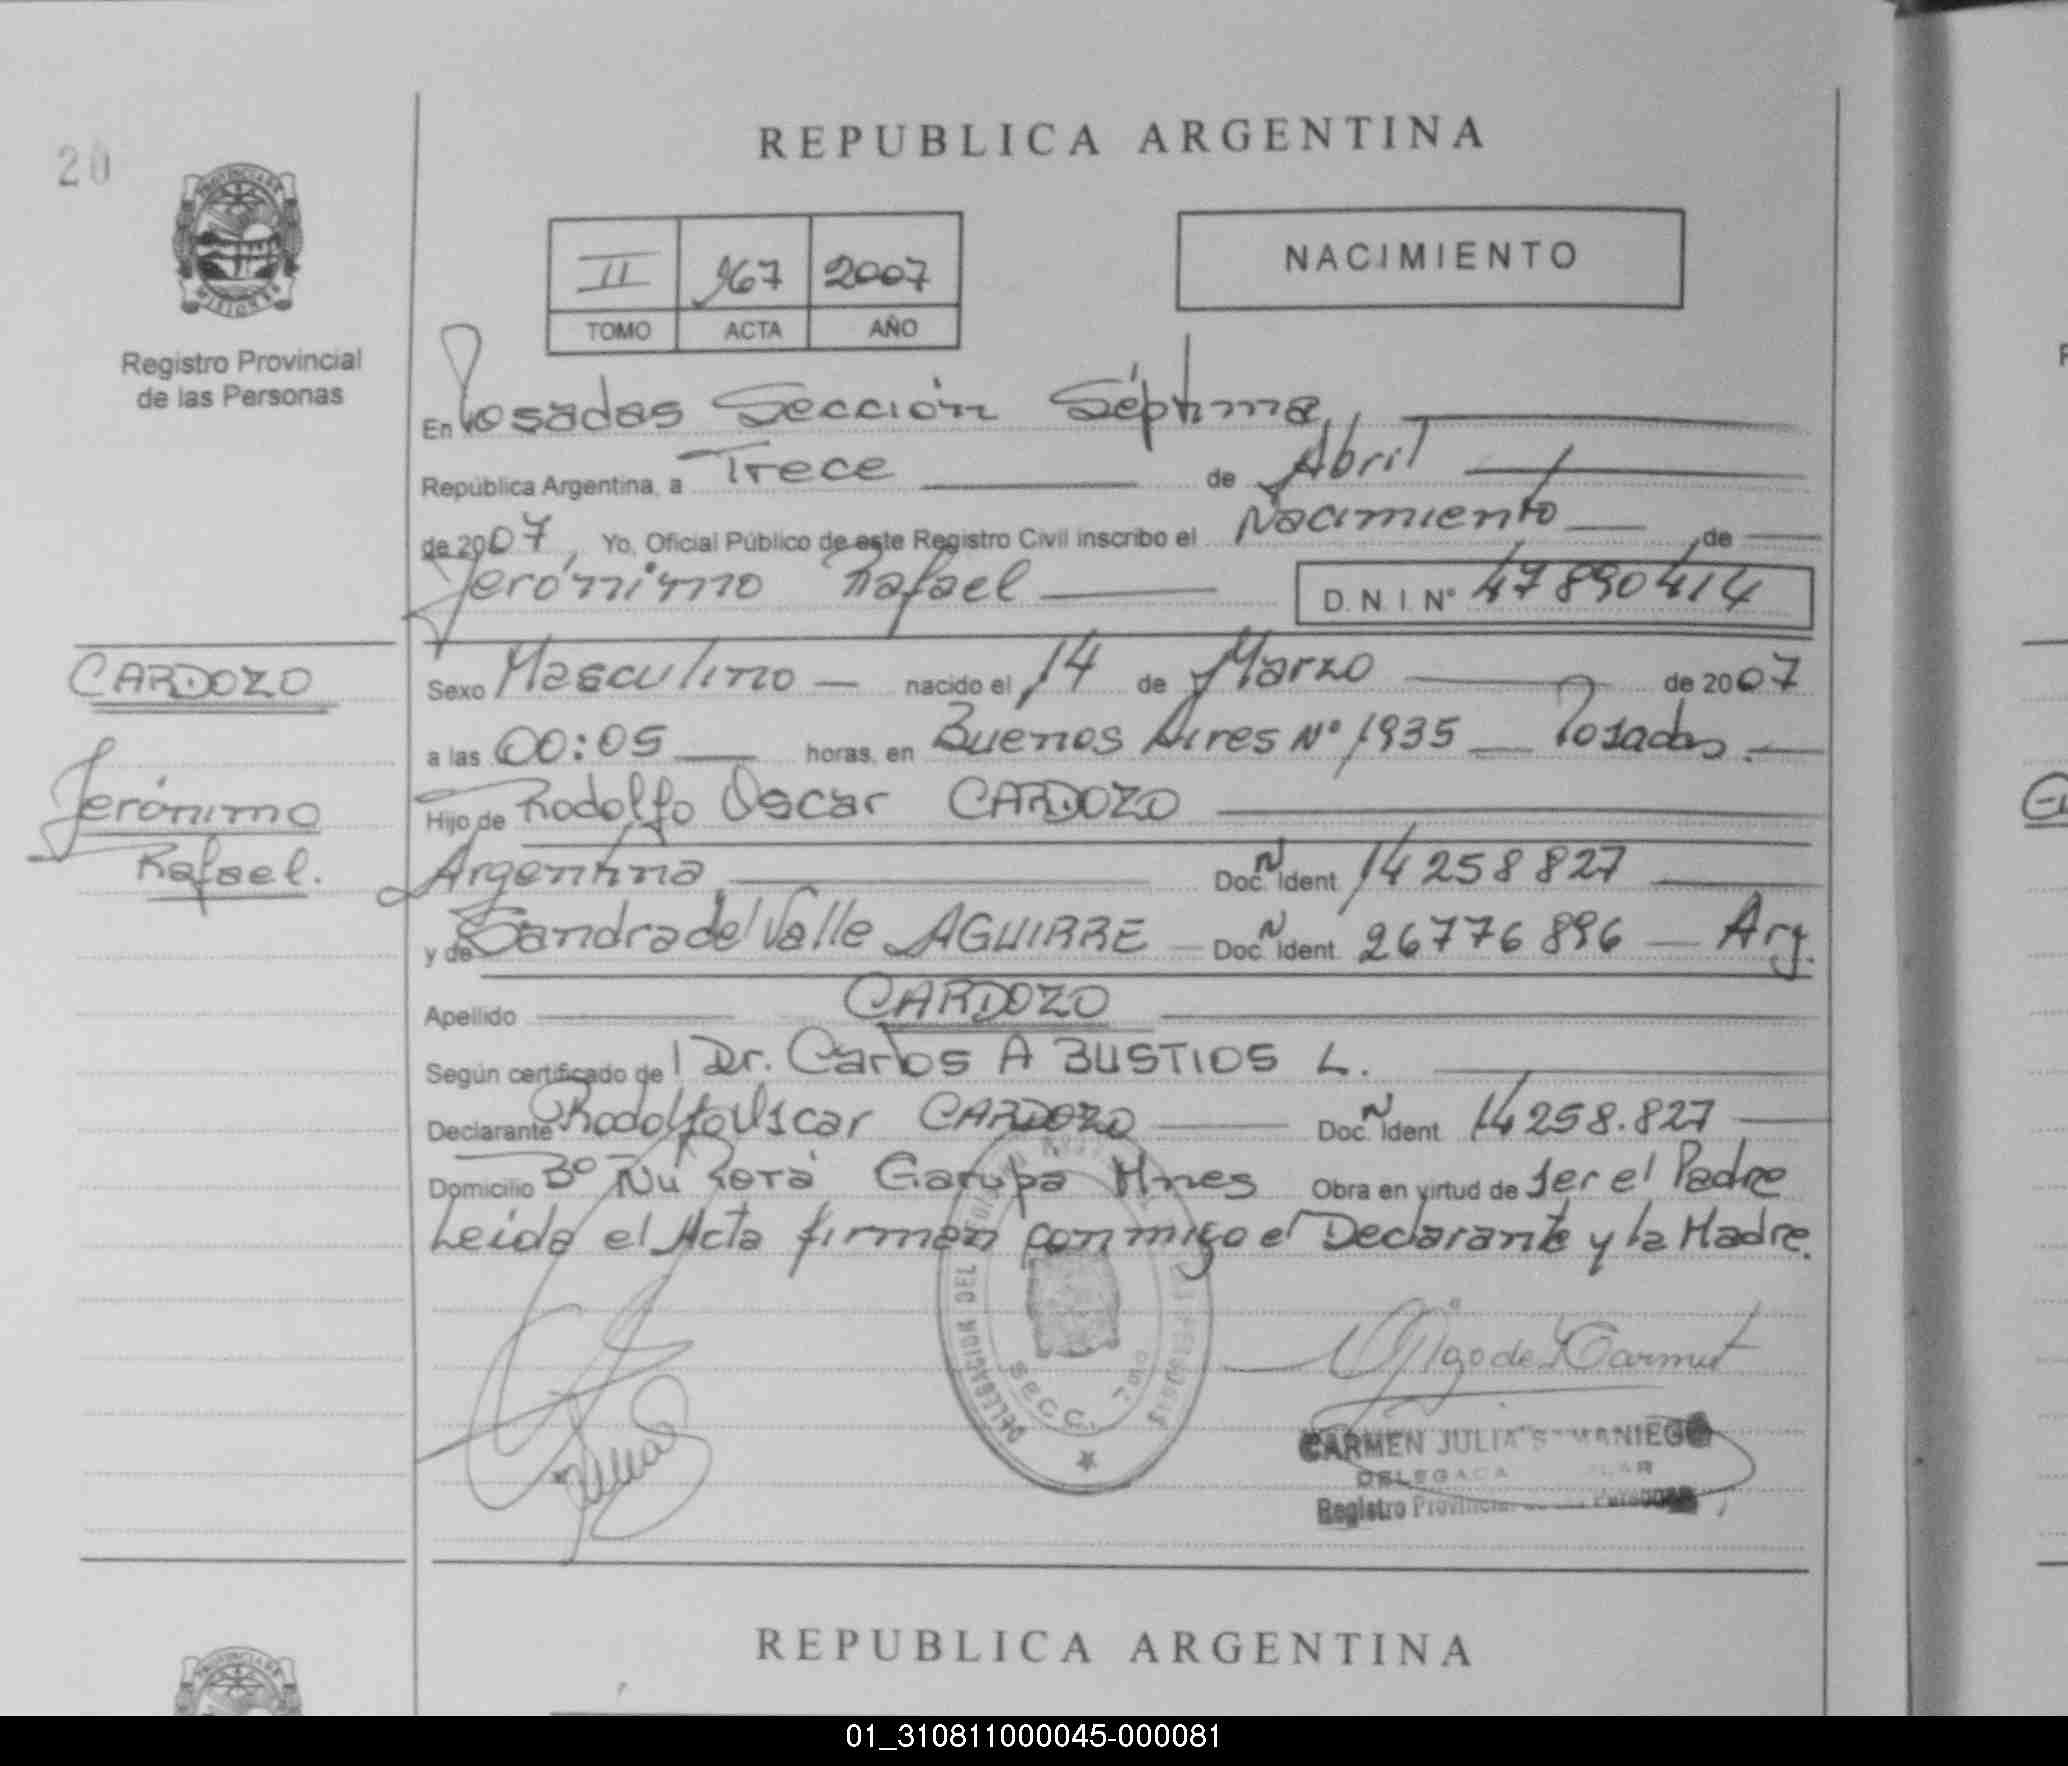 20
PROVINCIA DE
MISIONES
Registro Provincial
de las Personas
REPUBLICA ARGENTINA
II 967 2007
TOMO ACTA AÑO
NACIMIENTO
En Posadas Sección Séptima,
República Argentina, a Trece de Abril
de 2007, Yo, Oficial Público de este Registro Civil inscribo el Nacimiento de
Jerónimo Rafael D.N.I. N° 47890414
CARDOZO
Jerónimo
Rafael.
Sexo Masculino nacido el 14 de Marzo de 2007
a las 00:05 horas, en Buenos Aires N° 1935 Posadas.
Hijo de Rodolfo Oscar CARDOZO
Argentina Doc. N Ident 14 258 827
y de Sandra del Valle AGUIRRE Doc. N Ident. 26776896 Arg.
Apellido CARDOZO
Según certificado de Dr. Carlos A BUSTIOS L.
Declarante Rodolfo Oscar CARDOZO Doc. N Ident 14258.827
Domicilio B° Ñu Porá Garupa Mnes Obra en virtud de ser el Padre
Leída el Acta firman conmigo el Declarante y la Madre.
DELEGACION DEL
SECC. 7ma
CARMEN JULIA
Registro
REPUBLICA ARGENTINA
PROVINCIA DE
01_310811000045-000081